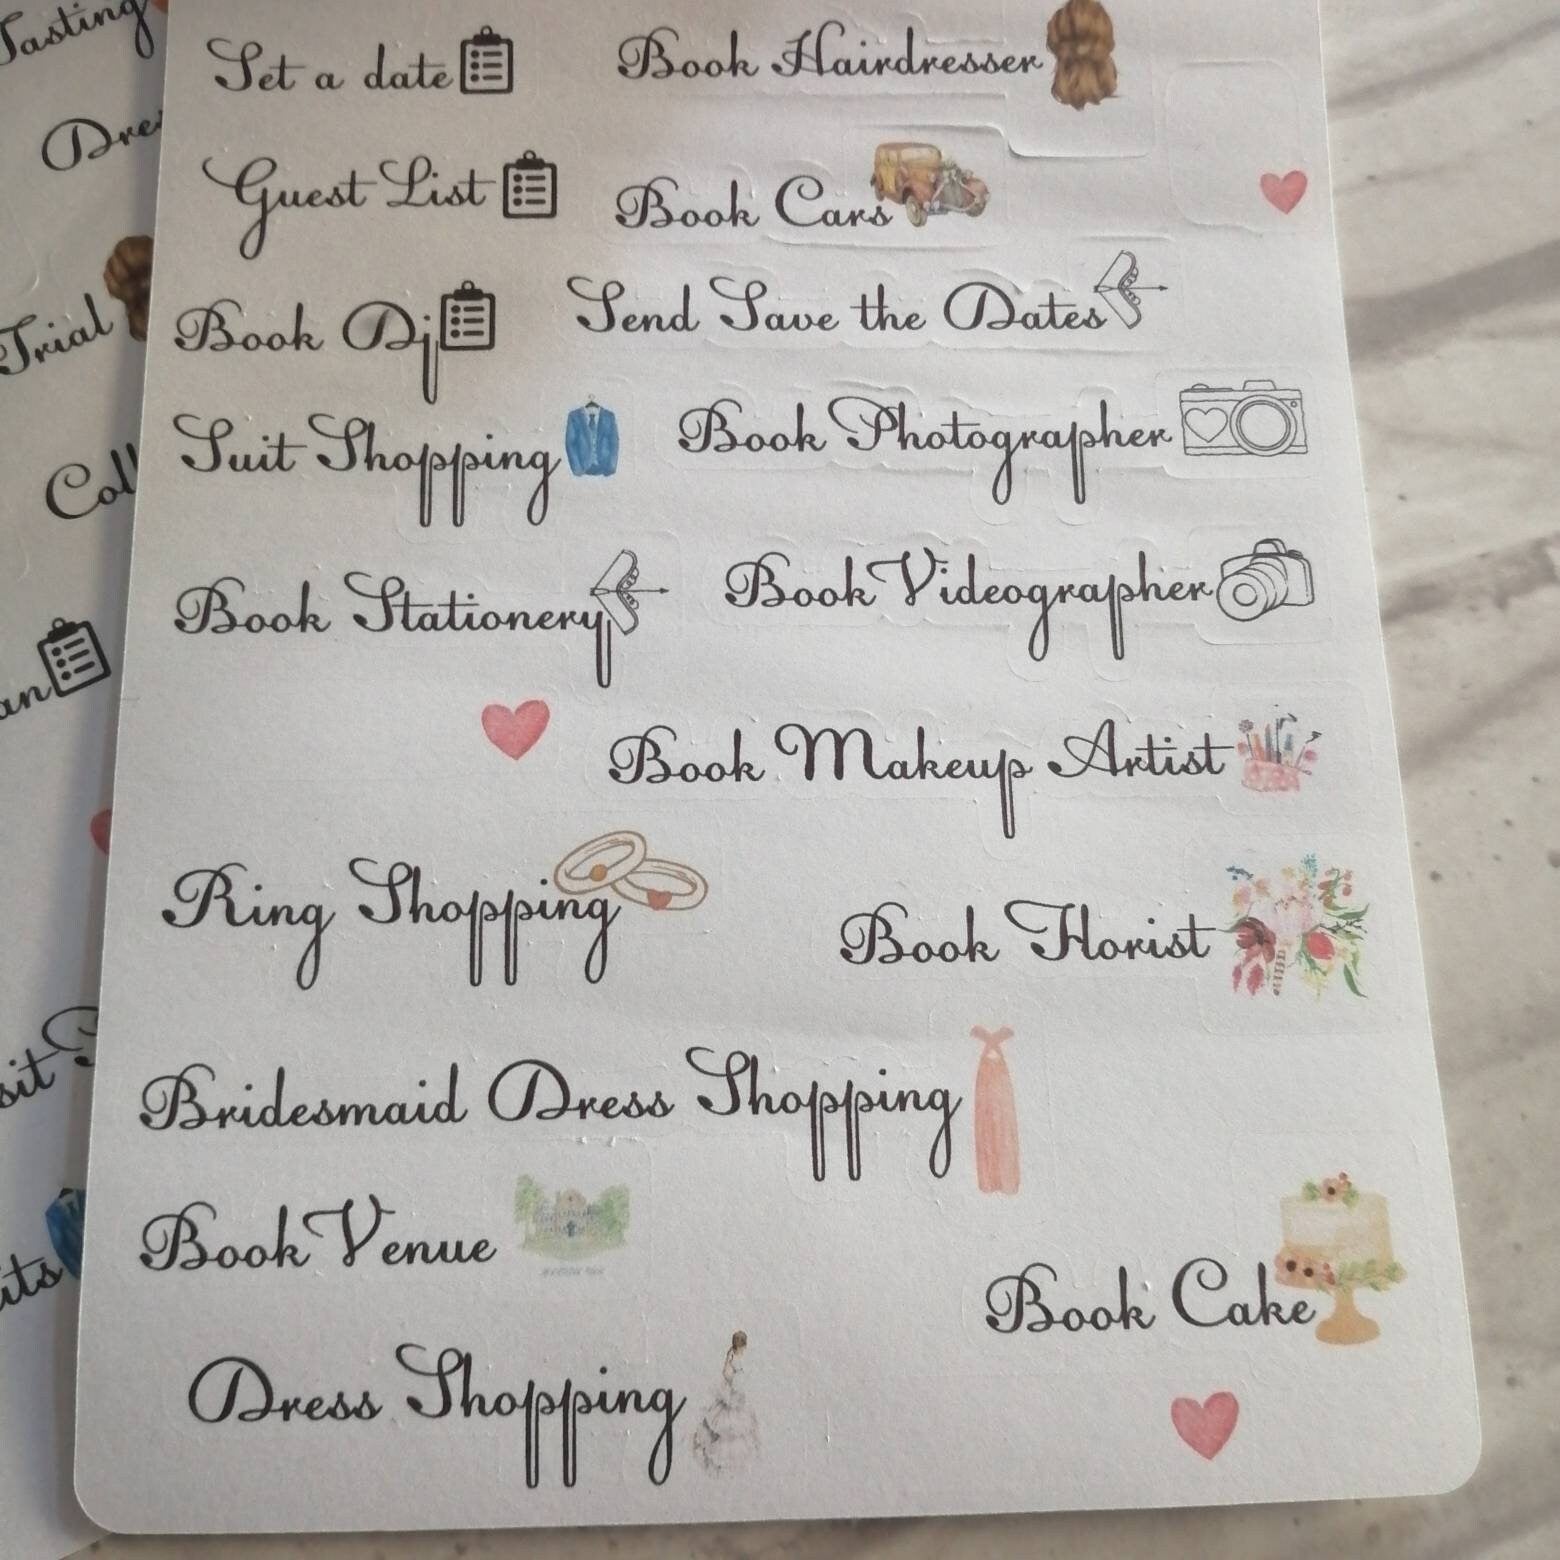 Tasting
Set a date
Book Hairdresser
Guest List
Book Cars
Book Dj
Send Save the Dates
Trial
Suit Shopping
Book Photographer
Book Stationery
Book Videographer
Book Makeup Artist
Ring Shopping
Book Florist
Bridesmaid Dress Shopping
Book Venue
Book Cake
Dress Shopping